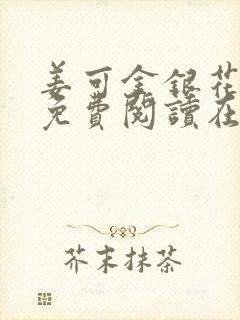 姜可金銀花
免費閱讀在
芥末抹茶